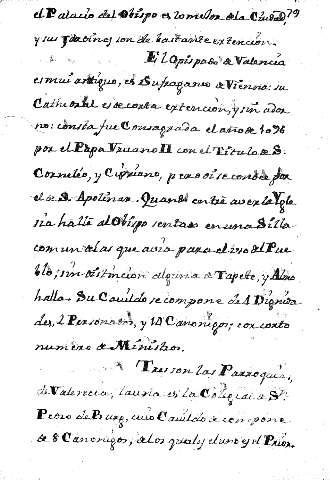 79
el Palacio del Obispo es lo mejor de la Ciudad,
y sus Jardines son de bastante extencion.
El Obispado de Valencia
es mui antiguo, es Sufraganeo de Vienna: su
Cathedral es de corta extencion, y sin ador
no: consta fue Consagrada el año de 1096
por el Papa Vrvano II con el Titulo de S.
Cornelio, y Cipriano, pero oi se conoce por
el de S. Apolinar. Quando entré a ver la Ygle
sia hallé al Obispo sentado en una Silla
comun de las que avia para el uso del Pue
blo; sin distincion alguna de Tapete, y Almo
halla. Su Cavildo se compone de 4 Dignida
des, 2 Personados, y 10 Canonigos; con corto
numero de Ministros.
Tres son las Parroquias,
de Valencia, la una es la Colegial de Sn
Pedro de Burg, cuio Cavildo se compone
de 8 Canonigos, de los quales el uno es el Prior.